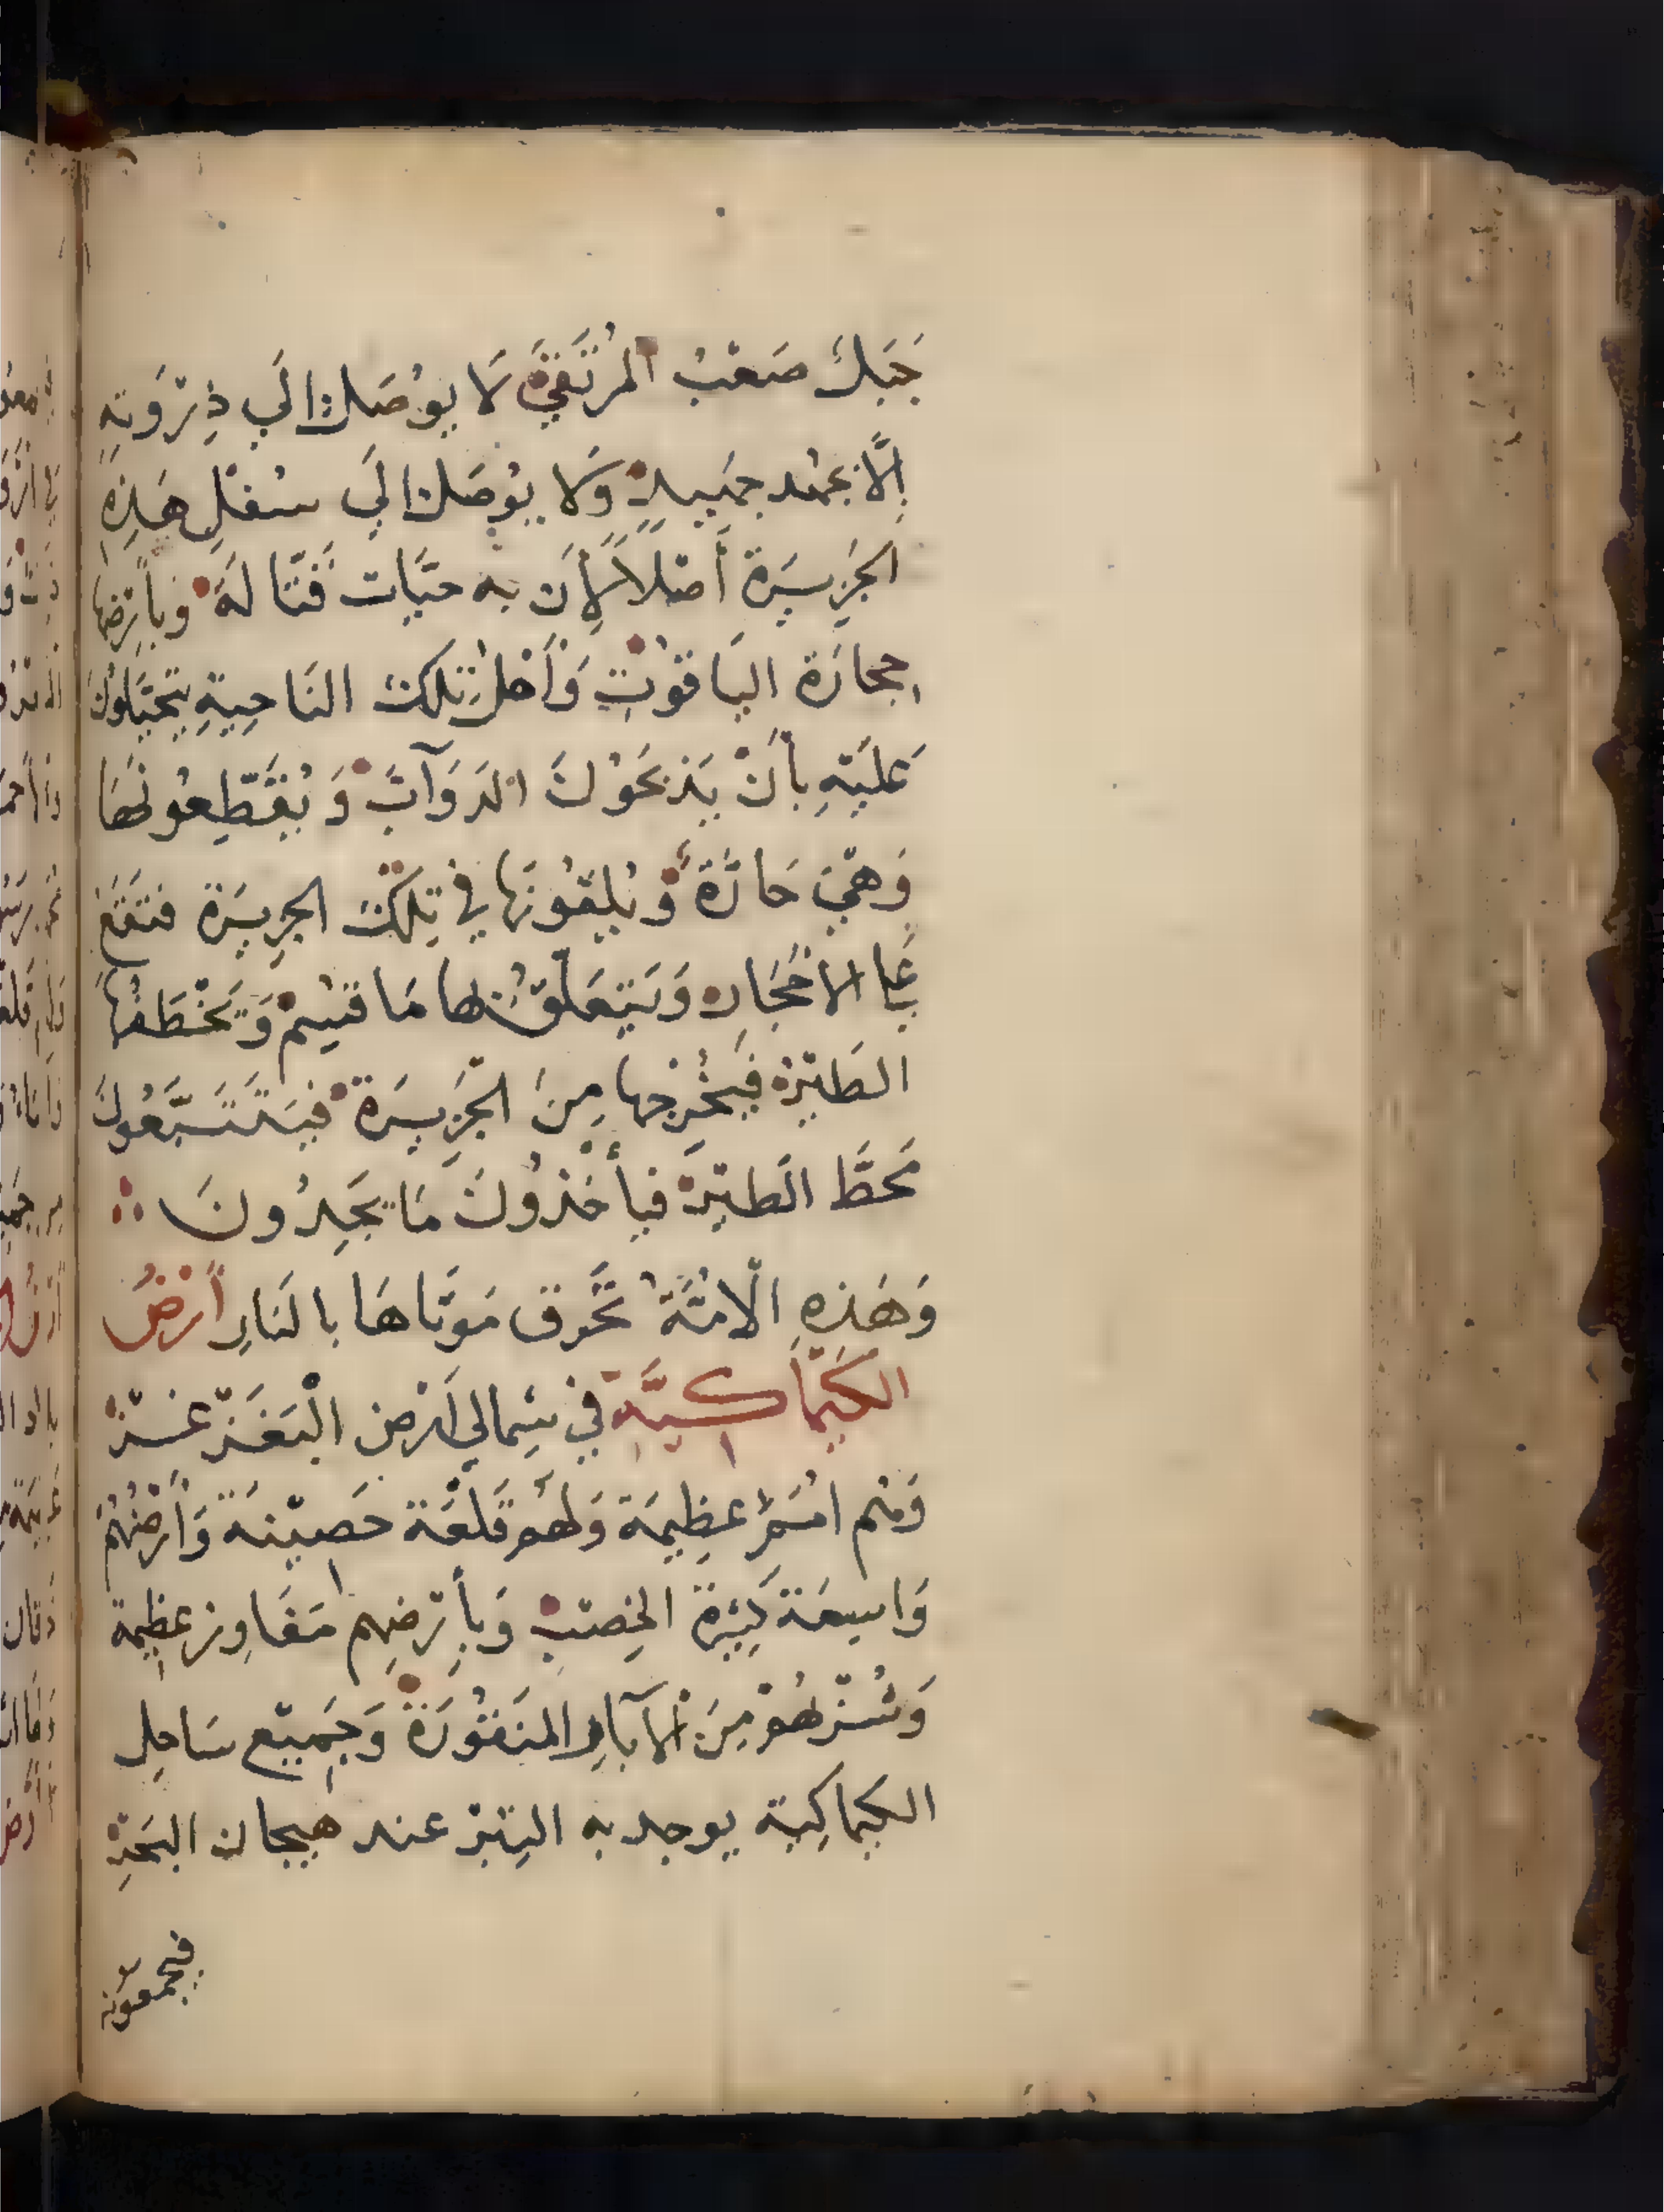 جَبَلٌ صَعْبُ المُرْتَقَى لَا يُوصَلُ الَي ذِرْوَتِهِ
اِلَّا بجُهْد جَهِيدٍ وَلَا يُوصَلُ الَي سُفْلِ هَذِهِ
الجَزِيرَة أَصْلاً لِأَن به حَيَّات قَتَّالَة وَبأَرْضِهَا
حِجَارَة اليَاقُوتِ وَأَهْلُ تِلْكَ النَاحِيةِ يَتَحَيَّلُونَ
عَلَيْهِ بأَنْ يَذْبَحُونَ الدَوَآبَّ وَيُقَطِّعُونَهَا
وَهِيَ حَارَّةٌ وَيُلْقُونَهَا فِي تِلْكَ الجزِيرَة فتَقَعُ
عَلَي الاَحْجَارِ وَيَتَعَلَّقُ بِهَا مَا قُسِمَ وَيَخْطَفُهَا
الطَيْرُ فَيُخْرِجُهَا مِنَ الجَزِيرَة فَيَتَتَبَّعُونَ
مَحَطَّ الطَيْرِ فَيأْخُذُونَ مَا يَجِدُونَ
وَهَذِهِ الْاُمَّةُ تَحْرق مَوْتَاهَا بِالنَارِ أَرْضُ
الكَيْمَاكِيَّةِ فِي شِمَالي أَرْضِ الْبَغَزْغَزْ
وَهُم اُمَمٌ عظِيمَة وَلَهُم قَلْعَة حَصِينَة وَأَرْضُهُمْ
وَاسِعَة كَثِيرَة الخِصْبِ وَبِأَرْضِهِم مَفَاوِز عَظِيمَة
وَشُرْبُهُمْ مِنَ الْآبَارِ المَنْقُورَة وَجَمِيع سَاحِل
الكيماكِيَة يوجد به التِبْر عند هيجان البَحْرِ
فيجمعونه